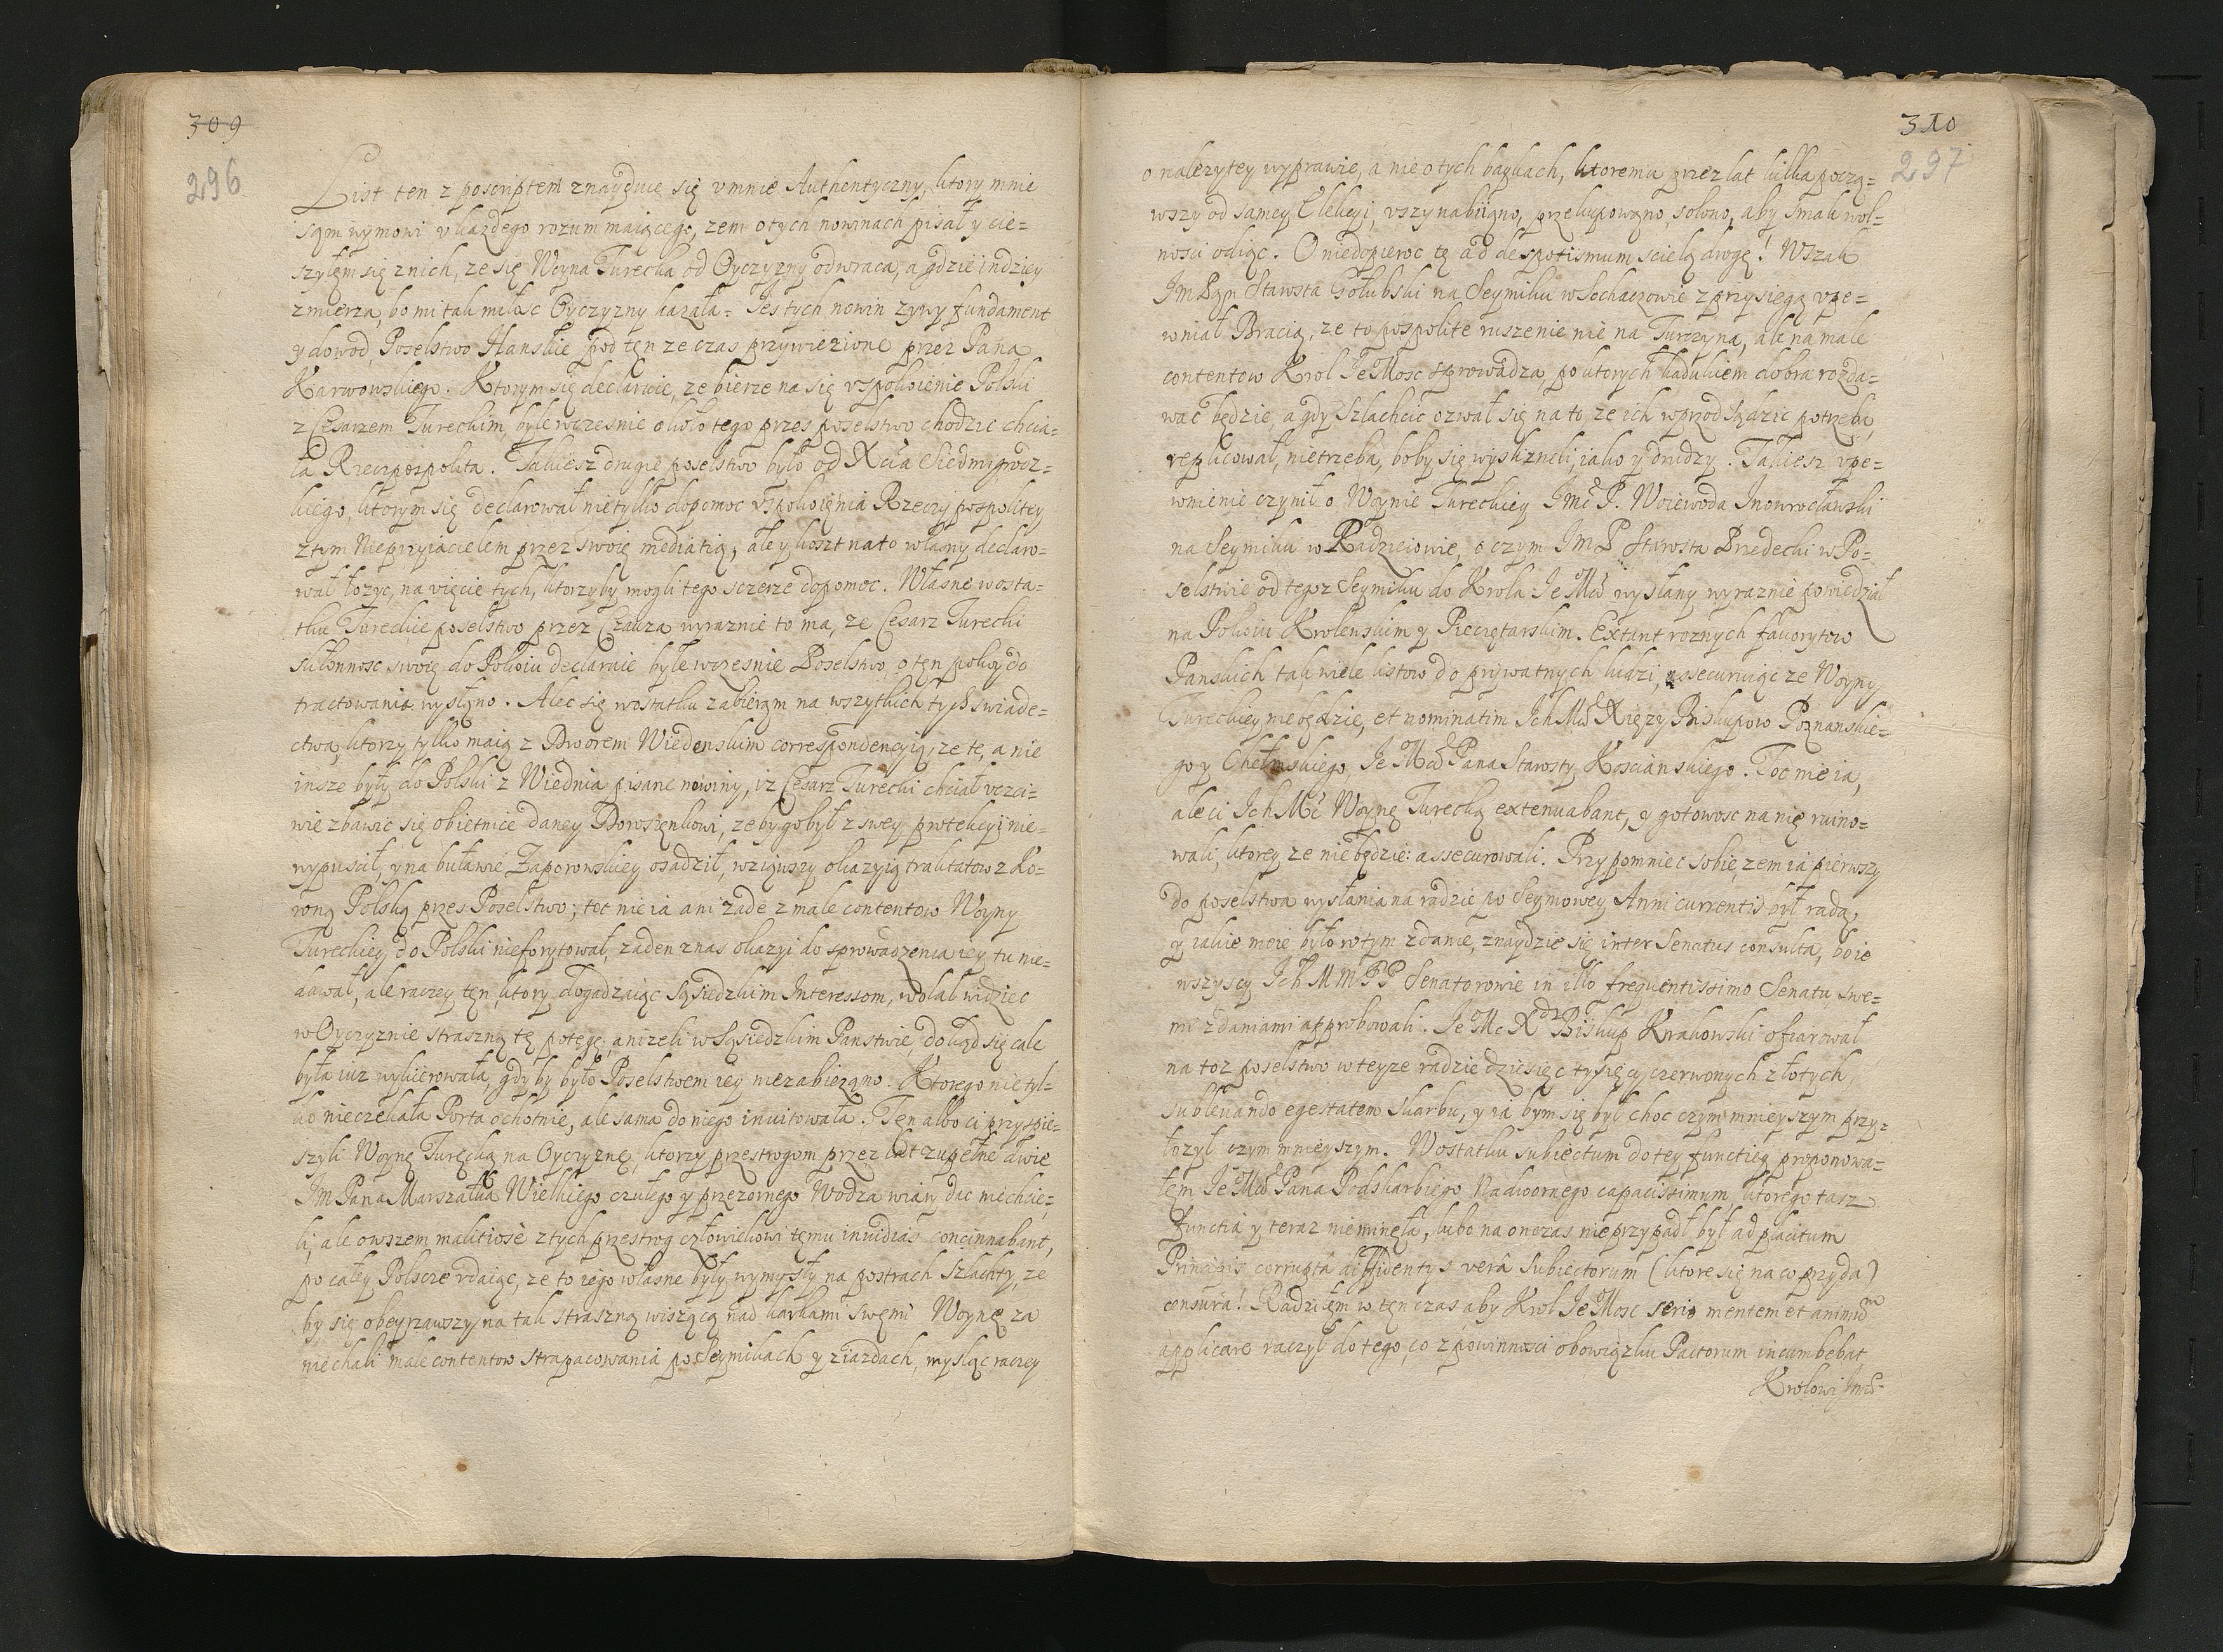 309
296
List ten z poscriptem znayduie się v mnie Authentyczny, ktory mnie
sąm wymowi v kazdego rozum maiącego, zem o tych nowinach pisał y cie=
szyłęm się z nich, ze się Woyna Turecka od Oyczyzny odwraca, a gdzie indziey
zmierza, bo mi tak miłosc Oyczyzny kazała. Jes tych nowin zywy fundament
y dowod, Poselstwo Hanskie pod tęn ze czas przywiezione przez Pana
Karwowskiego. Ktorym się declaruie, ze bierze na się vspokoienie Polski
z Cesarzem Tureckim, byle wczesnie około tego przes poselstwo chodzic chcia=
ła Rzeczpospolita. Takiesz drugie poselstwo było od Xcia Siedmigrodz=
kiego, ktorym się declarował nie tylko dopomoc vspokoięnia Rzeczy pospolitey
z tym Nieprzyiacielem przez swoię mediatią, ale y koszt na to własny declaro=
wał łozyc, na vięcie tych, ktorzyby mogli tego sczerze dopomoc. Własne w osta=
tku Tureckie poselstwo przez Czauza wyraznie to ma, ze Cesarz Turecki
skłonnosc swoię do Pokoiu declaruie byle wczesnie Poselstwo o tęn pokoy do
tractowania wysłano. Alec się w ostatku zabierąm na wszytkich tych swiade=
ctwa, ktorzy tylko maią z Dworem Wiedenskim correspondencyią, ze te, a nie
insze były do Polski z Wiednia pisane nowiny, iz Cesarz Turecki chciał vczci=
wie zbawic się obietnice daney Doroszęnkowi, zeby go był z swey protekcyi nie=
wypuscił, y na buławie Zaporowskiey osadził, wziąwszy okazyią traktatow z Ko=
roną Polską przes Poselstwo; toc nie ia ani zadę z male contentow Woyny
Tureckiey do Polski nieforytował, zaden z nas okazyi do sprowadzenia iey tu nie=
dawał, ale raczey tęn, ktory dogadzaiąc Sąsiedzkim Interessom, wolał widziec
w Oyczyznie straszną tę potęgę, anizeli w Sąsiedzkim Panstwie, dokąd się cale
była iuz wykierowała, gdyby było Poselstwem iey niezabierąno. Ktorego nie tyl=
ko nieczekała Porta ochotnie, ale sama do niego inuitowała. Tęn albo ci przyspie=
szyli Woynę Turęcką na Oyczyznę, ktorzy przestrogom przez lat zupełne dwie
JM Pana Marszałka Wielkiego czułego y przezornego Wodza wiary dac niechcie=
li, ale owszem malitiosè z tych przestrog człowiekowi tęmu inuidias concinnabant,
po całey Polscze vdaiąc, ze to iego własne były wymysły na postrach Szlachty, ze
by się obeyrzawszy na tak straszną wiszącą nad karkami swęmi Woynę za
niechali male contentow strapacowania po Seymikach y ziazdach, mysląc raczey
310
297
o nalezytey wyprawie, a nie o tych baykach, ktoremi przez lat kilka począ=
wszy od samey Elekcyi, vszy nabiiąno, przekupowąno, solono, aby smak wol=
nosci odiąc. O niedopieroc tę ad despotismum scielą drogę! Wszak
Jm Pąn Starosta Gołubski na Seymiku w Sochaczowie z przysięgą vpe=
wniał Bracią, ze to pospolite ruszenie nie na Turczyna, ale na male
contentow Krol JeMosc sprowadza, po ktorych kadukiem dobra rozda=
wac będzie, a gdy Szlachcic ozwał się na to ze ich wprzod sądzic potrzeba,
replicował, nietrzeba, boby się wyslizneli, iako y drudzy. Takiesz vpe=
wnienie czynił o Woynie Tureckiey Jmć P. Woiewoda Inowrocławski
na Seymiku w Radzieiowie, o czym JmP Starosta Przedecki w Po=
selstwie od tegoz Seymiku do Krola JeMći wysłany wyraznie powiedział
na Pokoiu Krolewskim y Pieczętarskim. Extant roznych fauorytow
Panskich tak wiele listow do priwatnych ludzi, assecuruiąc ze Woyny
Tureckiey nie będzie, et nominatim Ich Mći Xięzy Biskupow Poznanskie=
go y Chełmskiego, JeMći Pana Starosty Koscianskiego. Toc nie ia,
ale ci Ich Mć Woynę Turecką extenuabant, y gotowosc na nię ruino=
wali, ktorey ze nie będzie: assecurowali. Przypomniec sobie, zem ia pierwszy
do poselstwa wysłania na radzie po Seymowey Anni currentis był radą,
y iakie moie było w tym zdanie, znaydzie się inter Senatus consulta, bo ie
wszyscy Ich MM PP Senatorowie in illo frequentissimo Senatu swe=
mi zdaniami approbowali. JeMć Xdz Biskup Krakowski ofiarował
na toz poselstwo w teyze radzie dziesięc tysięcy czerwonych złotych,
subleuando egestatem Skarbu, y ia bym się był choc czym mnieyszym przy=
łozył czym mnieyszym. W ostatku subiectum do tey functiey proponowa=
łem JeMći Pana Podskarbiego Nadwornego capacissimum, ktorego tasz
functia y teraz nieminęła, lubo na on czas nieprzypadł był ad placitum
Principis corrupta diffidentys verâ Subiectorum (ktore się na co przyda)
censurâ! Radziłęm w tęn czas aby Krol JeMosc serio mentem et animum
applicare raczył do tego, co z powinnosci obowiązku Pactorum incumbebat
Krolowi Jmći